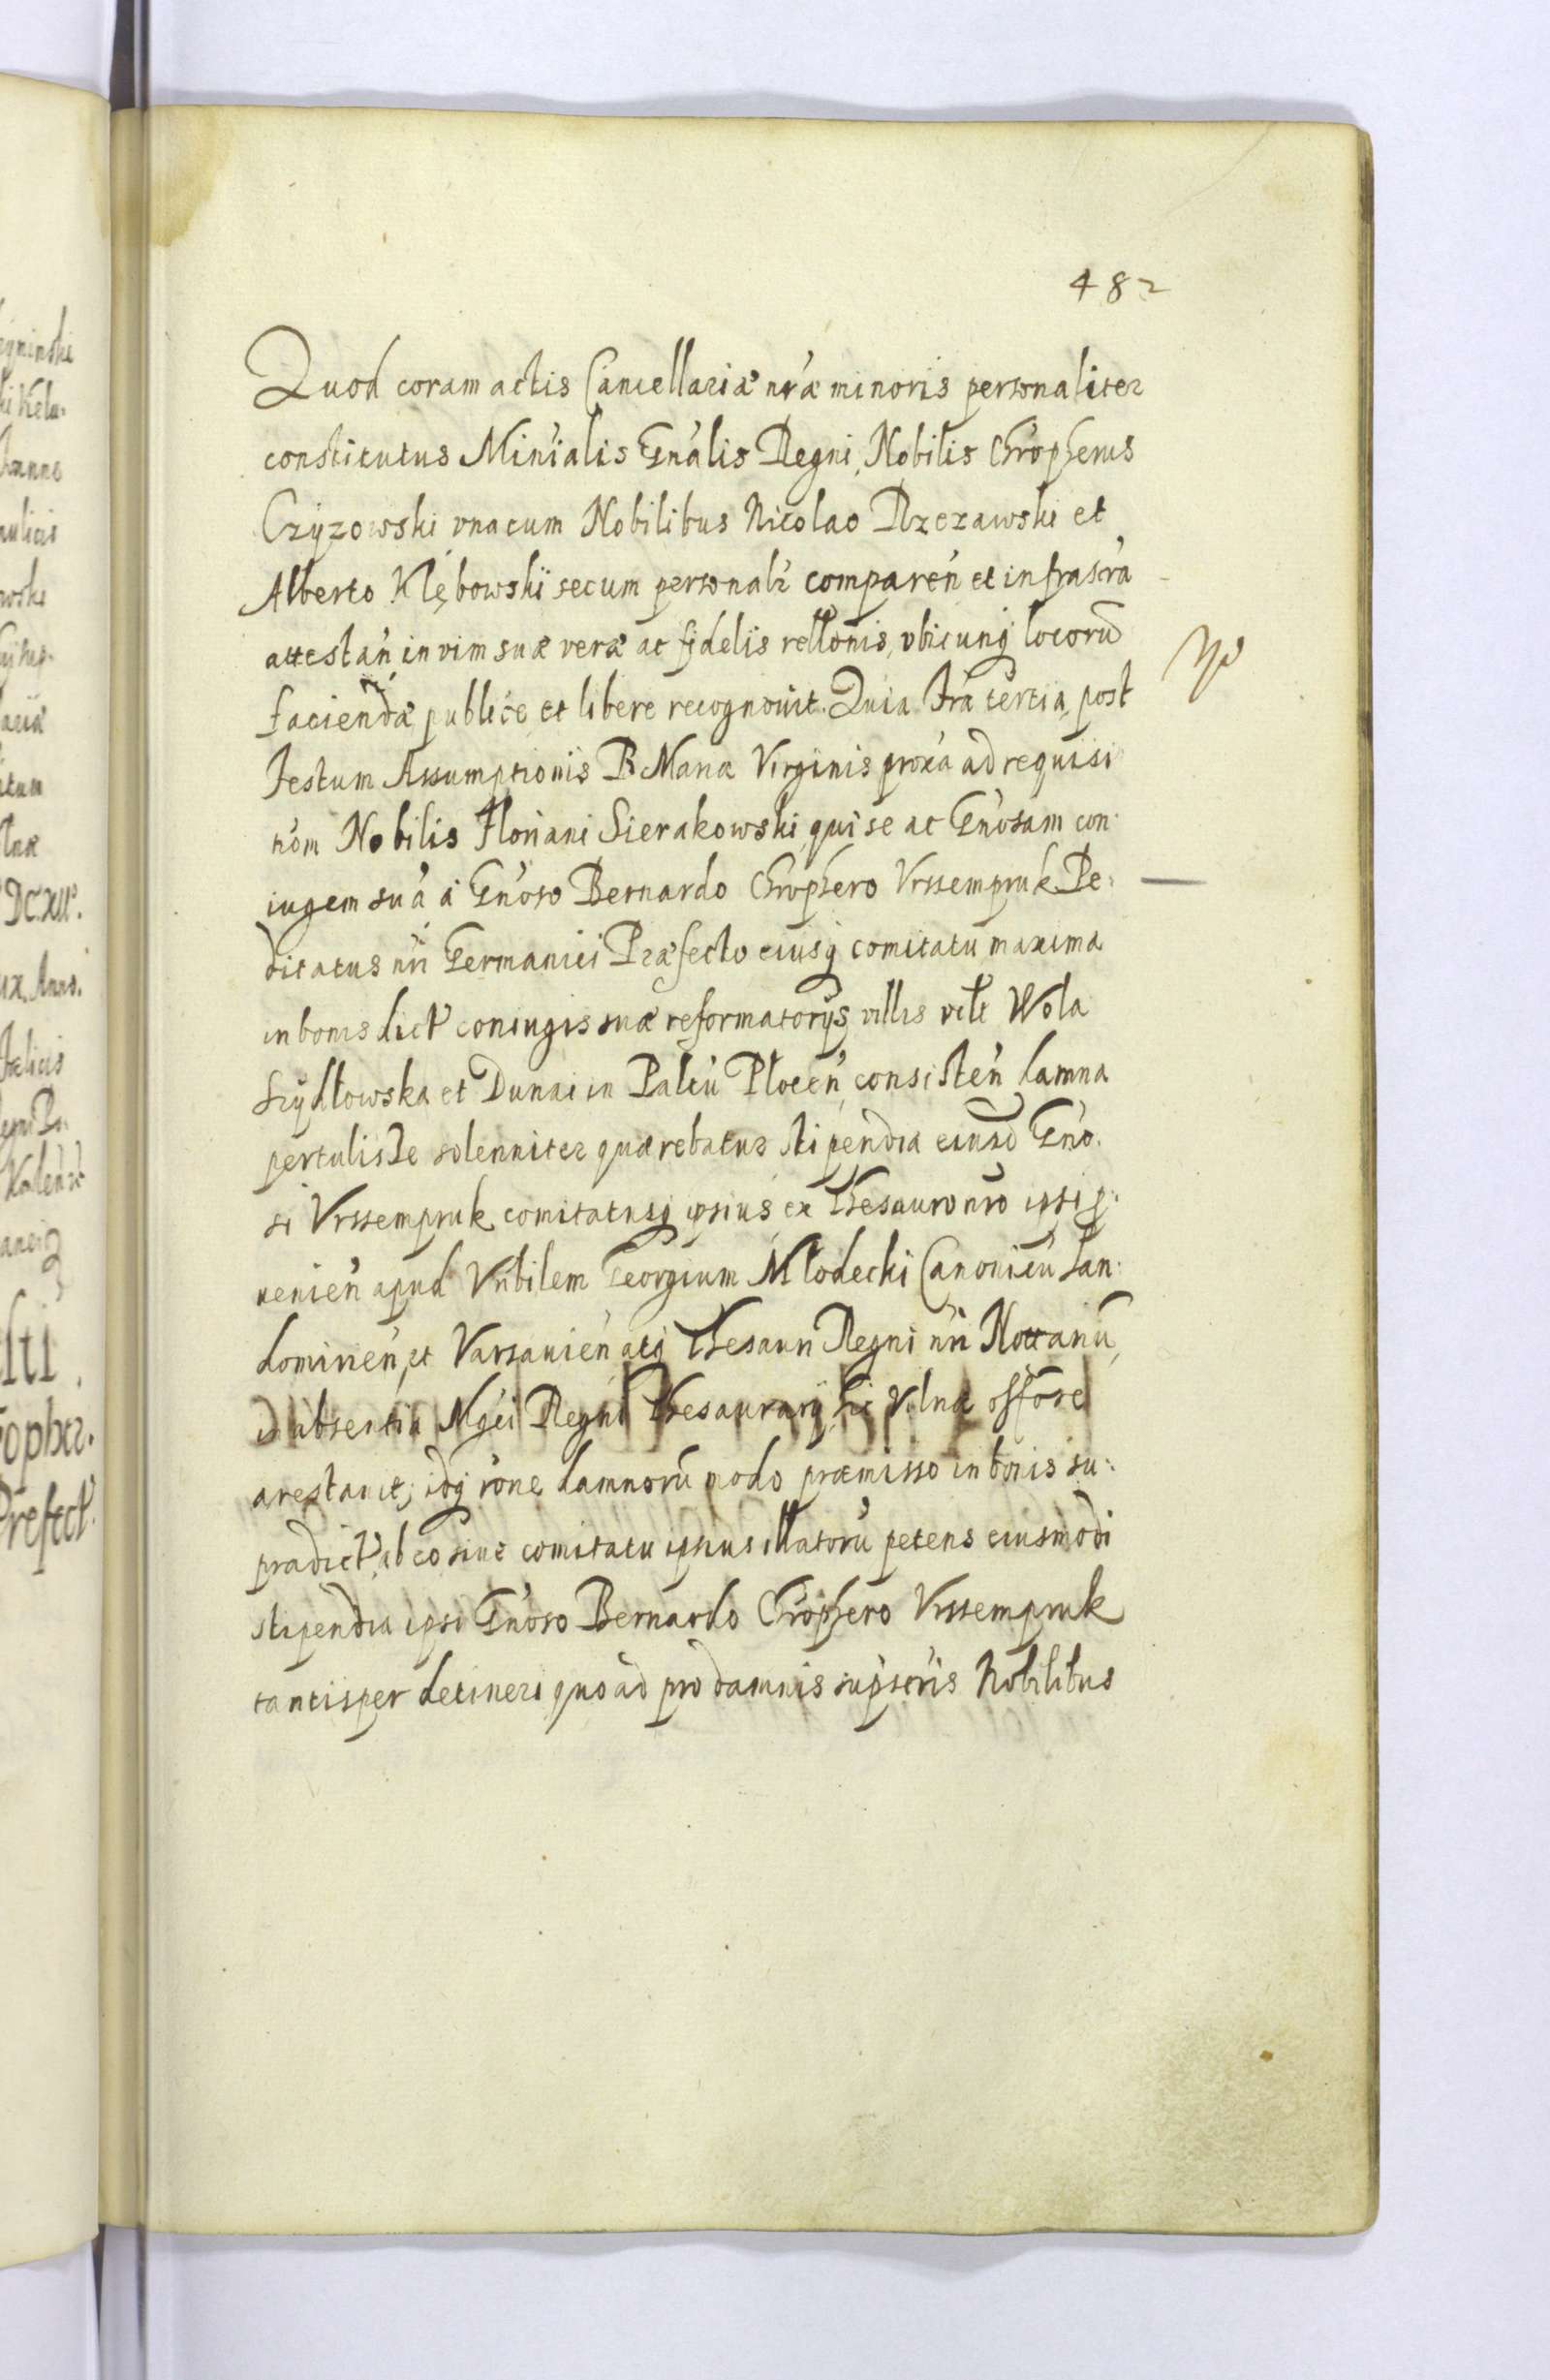 482
Quod coram actis Cancellariæ nrǽ minoris personaliter
constitutus Minialis Gnalis Regni, Nobilis Chropherus
Czyzowski vnacum Nobilibus Nicolao Rzezawski et
Alberto Klębowski secum personalr comparen et infrascra
attestan in vim suæ veræ ac fidelis rellonis, vbicunq locorũ
faciendæ publice et libere recognouit. Quia fra tertia post
festum Assumptionis B Mariæ Virginis proxa ad requisi
nom Nobilis Floriani Sierakowski, qui se ac Gnosam con:
iugem suã à Gnoso Bernardo Chrophero Vrssempruk Pe:
ditatus nri Germanici Præfecto eiusq comitatu maxima
in bonis dict coniugis suæ reformatorijs villis vtlt Wola
Szydłowska et Dunai in Paltu Płocen consisten damna
pertulisse solenniter quærebatur stipendia eiusd Gno:
si Vrssempruk comitatusq ipsius ex Thesauro nro ipsi p:
uenien apud Vnbilem Georgium Młodecki Canonicũ San:
domirien, et Varsauien atq Thesauri Regni nri Nottariũ,
in absentia Mgci Regni Thesaurarij hic Vilnæ
arestauit, idq rone damnorũ modo præmisso in bonis su:
pradict, ab eo siue comitatu ipsius illatorũ petens eiusmodi
stipendia ipsi Gnoso Bernardo Chrophero Vrssempruk
tantisper detineri quoad pro damnis supscris Nobilibus